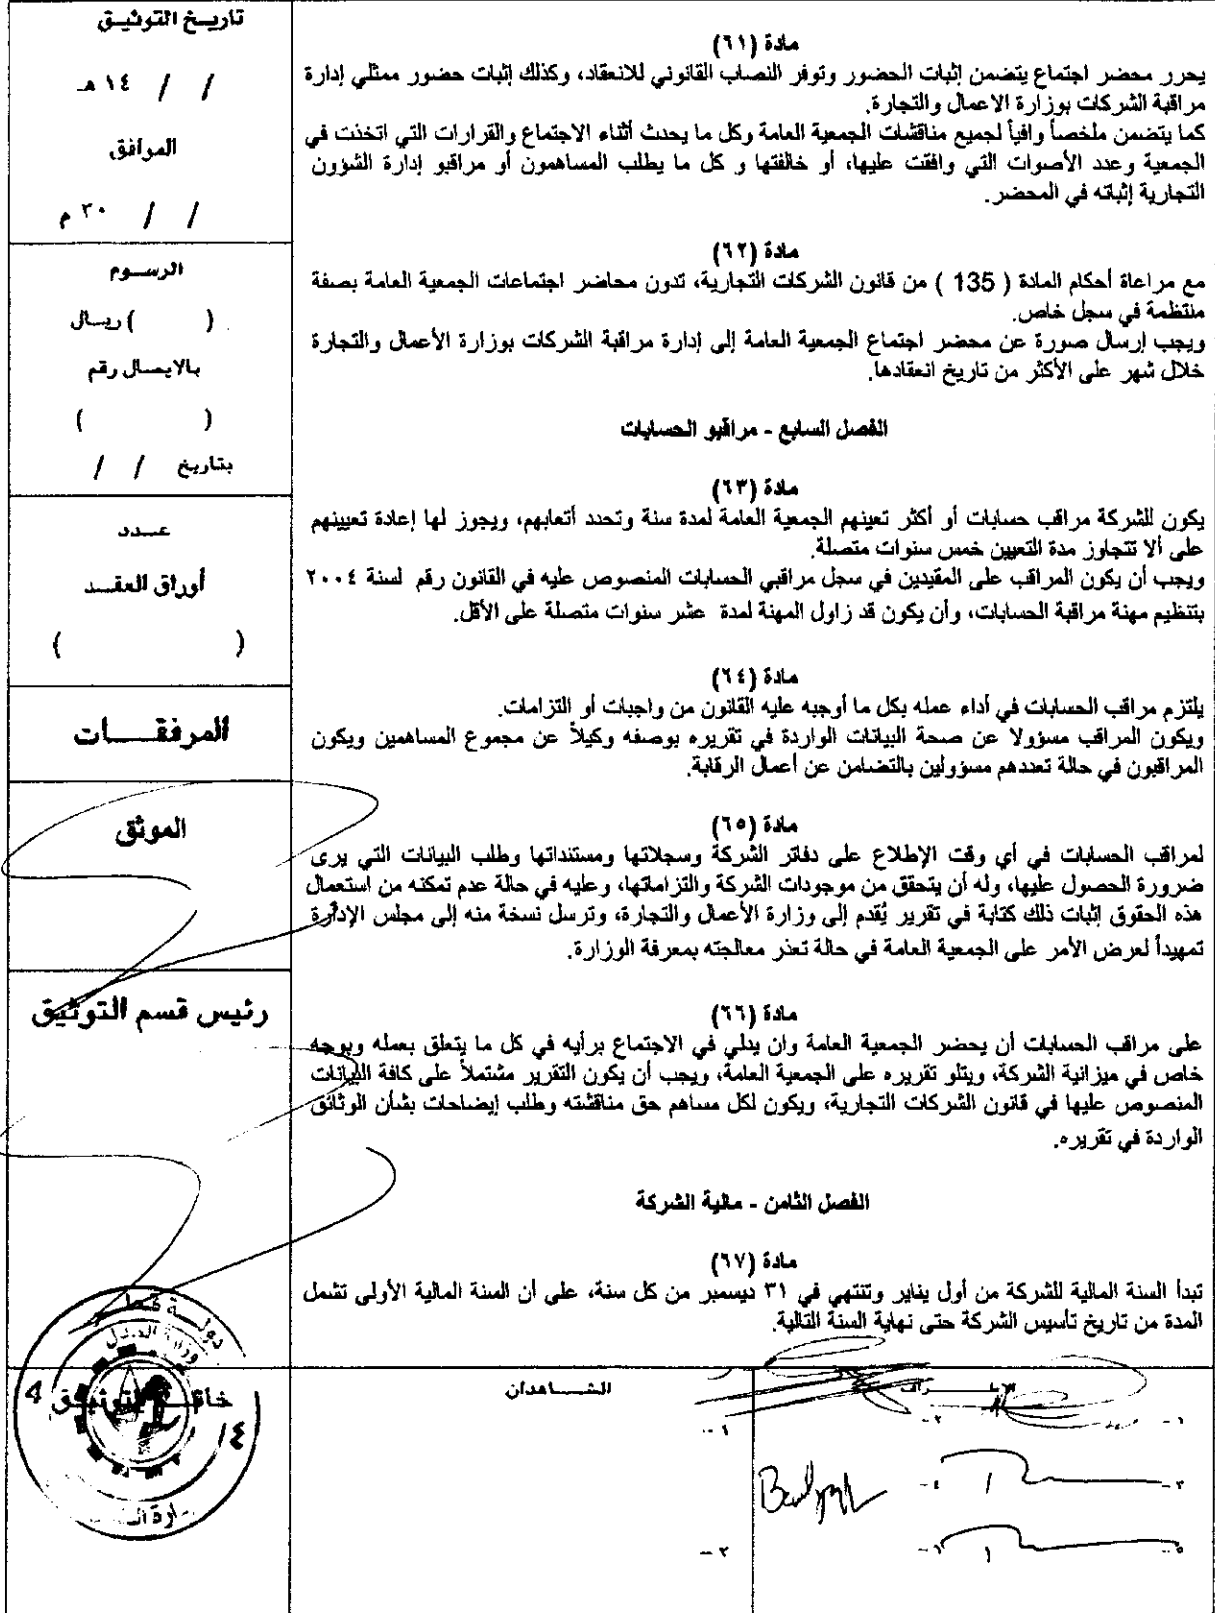 مادة (٦١)
يحرر محضر اجتماع يتضمن إثبات الحضور وتوفر النصاب القانوني للانعقاد، وكذلك إثبات حضور ممثلي إدارة
مراقبة الشركات بوزارة الاعمال والتجارة.
كما يتضمن ملخصاً وافياً لجميع مناقشات الجمعية العامة وكل ما يحدث أثناء الاجتماع والقرارات التي اتخذت في
الجمعية وعدد الأصوات التي وافقت عليها، أو خالفتها و كل ما يطلب المساهمون أو مراقبو إدارة الشؤون
التجارية إثباته في المحضر.
مادة (٦٢)
مع مراعاة أحكام المادة ( 135 ) من قانون الشركات التجارية، تدون محاضر اجتماعات الجمعية العامة بصفة
منتظمة في سجل خاص.
ويجب إرسال صورة عن محضر اجتماع الجمعية العامة إلى إدارة مراقبة الشركات بوزارة الأعمال والتجارة
خلال شهر على الأكثر من تاريخ انعقادها.
الفصل السابع - مراقبو الحسابات
مادة (٦٣)
يكون للشركة مراقب حسابات أو أكثر تعينهم الجمعية العامة لمدة سنة وتحدد أتعابهم، ويجوز لها إعادة تعيينهم
على ألا تتجاوز مدة التعيين خمس سنوات متصلة.
ويجب أن يكون المراقب على المقيدين في سجل مراقبي الحسابات المنصوص عليه في القانون رقم لسنة ٢٠٠٤
بتنظيم مهنة مراقبة الحسابات، وأن يكون قد زاول المهنة لمدة عشر سنوات متصلة على الأقل.
مادة (٦٤)
يلتزم مراقب الحسابات في أداء عمله بكل ما أوجبه عليه القانون من واجبات أو التزامات.
ويكون المراقب مسؤولا عن صحة البيانات الواردة في تقريره بوصفه وكيلاً عن مجموع المساهمين ويكون
المراقبون في حالة تعددهم مسؤولين بالتضامن عن أعمال الرقابة.
مادة (٦٥)
لمراقب الحسابات في أي وقت الإطلاع على دفاتر الشركة وسجلاتها ومستنداتها وطلب البيانات التي يرى
ضرورة الحصول عليها، وله أن يتحقق من موجودات الشركة والتزاماتها، وعليه في حالة عدم تمكنه من استعمال
هذه الحقوق إثبات ذلك كتابة في تقرير يُقدم إلى وزارة الأعمال والتجارة، وترسل نسخة منه إلى مجلس الإدارة
تمهيداً لعرض الأمر على الجمعية العامة في حالة تعذر معالجته بمعرفة الوزارة.
مادة (٦٦)
على مراقب الحسابات أن يحضر الجمعية العامة وان يدلي في الاجتماع برأيه في كل ما يتعلق بعمله وبوجه
خاص في ميزانية الشركة، ويتلو تقريره على الجمعية العامة، ويجب أن يكون التقرير مشتملاً على كافة البيانات
المنصوص عليها في قانون الشركات التجارية، ويكون لكل مساهم حق مناقشته وطلب إيضاحات بشأن الوثائق
الواردة في تقريره.
الفصل الثامن - مالية الشركة
مادة (٦٧)
تبدأ السنة المالية للشركة من أول يناير وتنتهي في ٣١ ديسمبر من كل سنة، على أن السنة المالية الأولى تشمل
المدة من تاريخ تأسيس الشركة حتى نهاية السنة التالية.
تاريـخ التوثيـق
/ / ١٤ هـ
الموافق
/ / ٢٠ م
الرســوم
( ) ريــال
بـالايصـال رقم
( )
بتاريخ / /
عـــدد
أوراق العقــد
( )
المرفقــــات
الموثق
رئيس قسم التوثيق
١ -
٢ -
٣ -
٤ -
٥ -
الشـــاهدان
١ -
٢ -
خاتم التوثيق
4
١٤